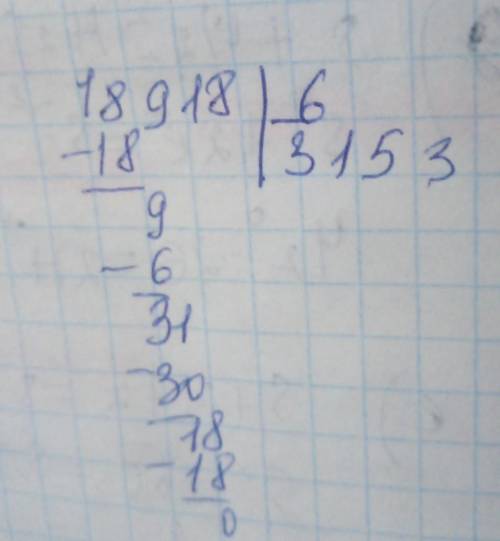 18918 | 6
-18 3153
9
-6
31
-30
18
-18
0